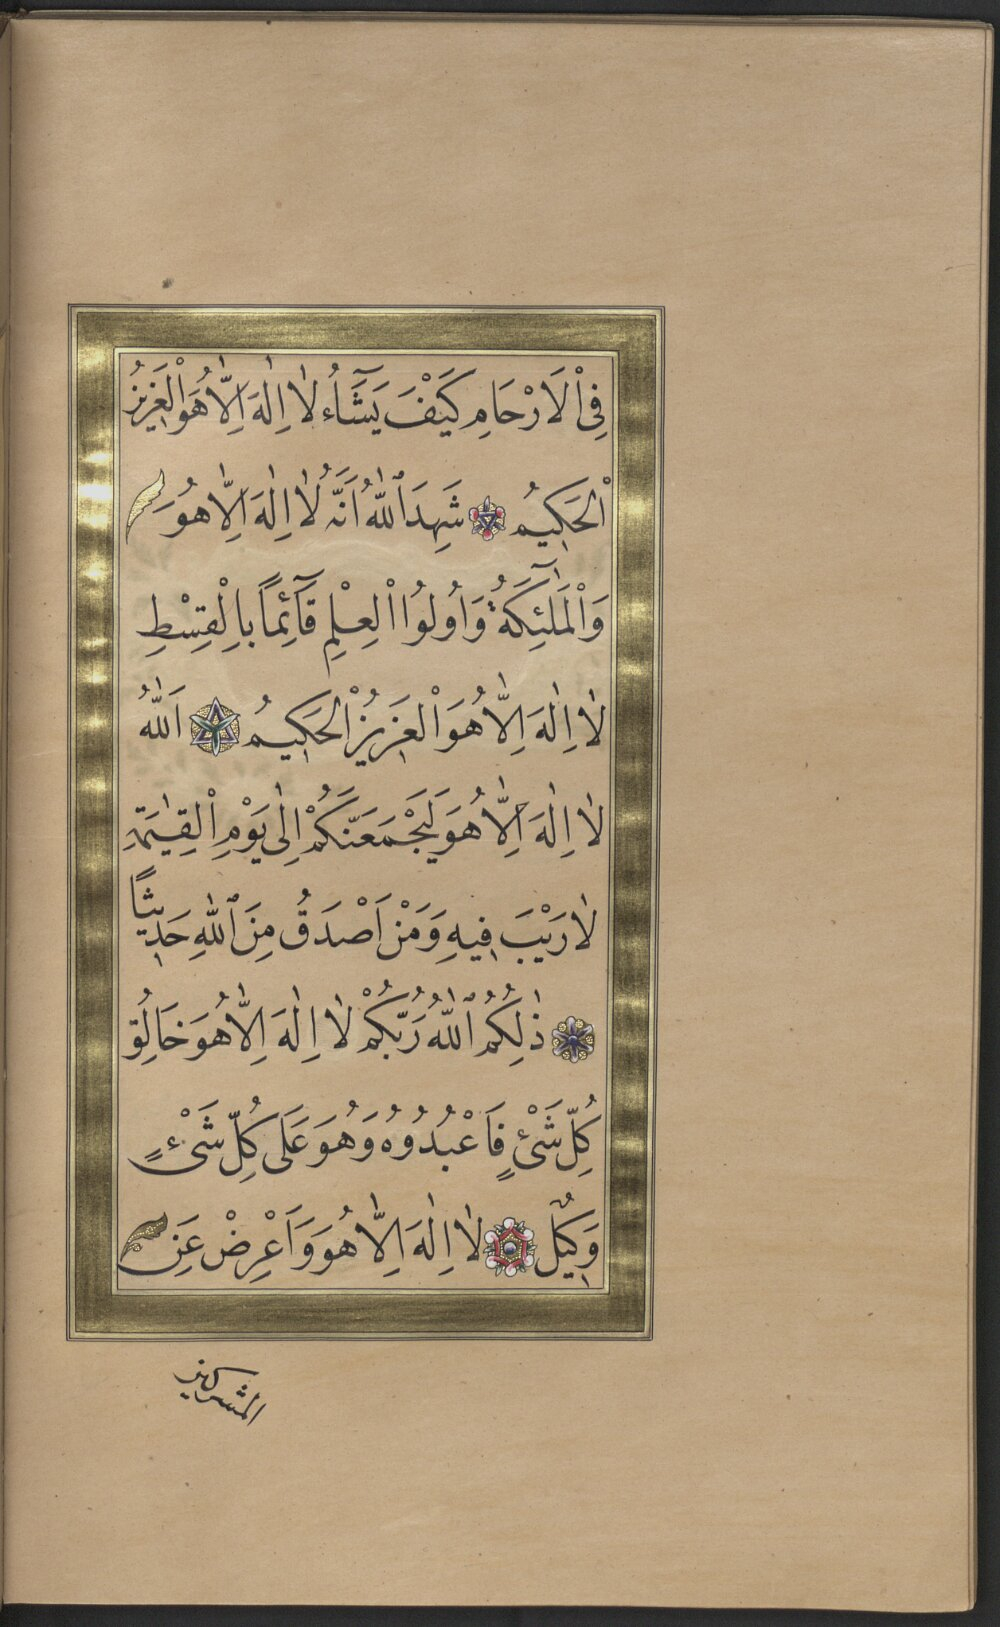 فِى اْلاَرْحَامِ كَيْفَ يَشَٓاءُ لٰٓا اِلٰهَ اِلَّا هُوَ الْعَزِيزُ
اْلحَكِيمُ شَهِدَ ٱللّٰهُ اَنَّهُ لٰٓا اِلٰهَ اِلَّا هُوَ
وَاْلمَلٰٓئِكَةُ وَاُولُوا اْلعِلْمِ قَٓائِماً بِالْقِسْطِ
لٰٓا اِلٰهَ اِلَّا هُوَ اْلعَزِيزُ اْلحَكِيمُ اَللّٰهُ
لٰٓا اِلٰهَ اِلَّا هُوَ لَيَجْمَعَنَّكُمْ اِلٰى يَوْمِ اْلقِيٰمَةِ
لَا رَيْبَ فِيهِ وَمَنْ اَصْدَقُ مِنَ ٱللّٰهِ حَدِيثاً
ذٰلِكُمُ ٱللّٰهُ رَبُّكُمْ لٰٓا اِلٰهَ اِلَّا هُوَ خَالِقُ
كُلِّ شَىْءٍ فَاعْبُدُوهُ وَهُوَ عَلٰى كُلِّ شَىْءٍ
وَكِيلٌ لٰٓا اِلٰهَ اِلَّا هُوَ وَاَعْرِضْ عَنِ
المشركين